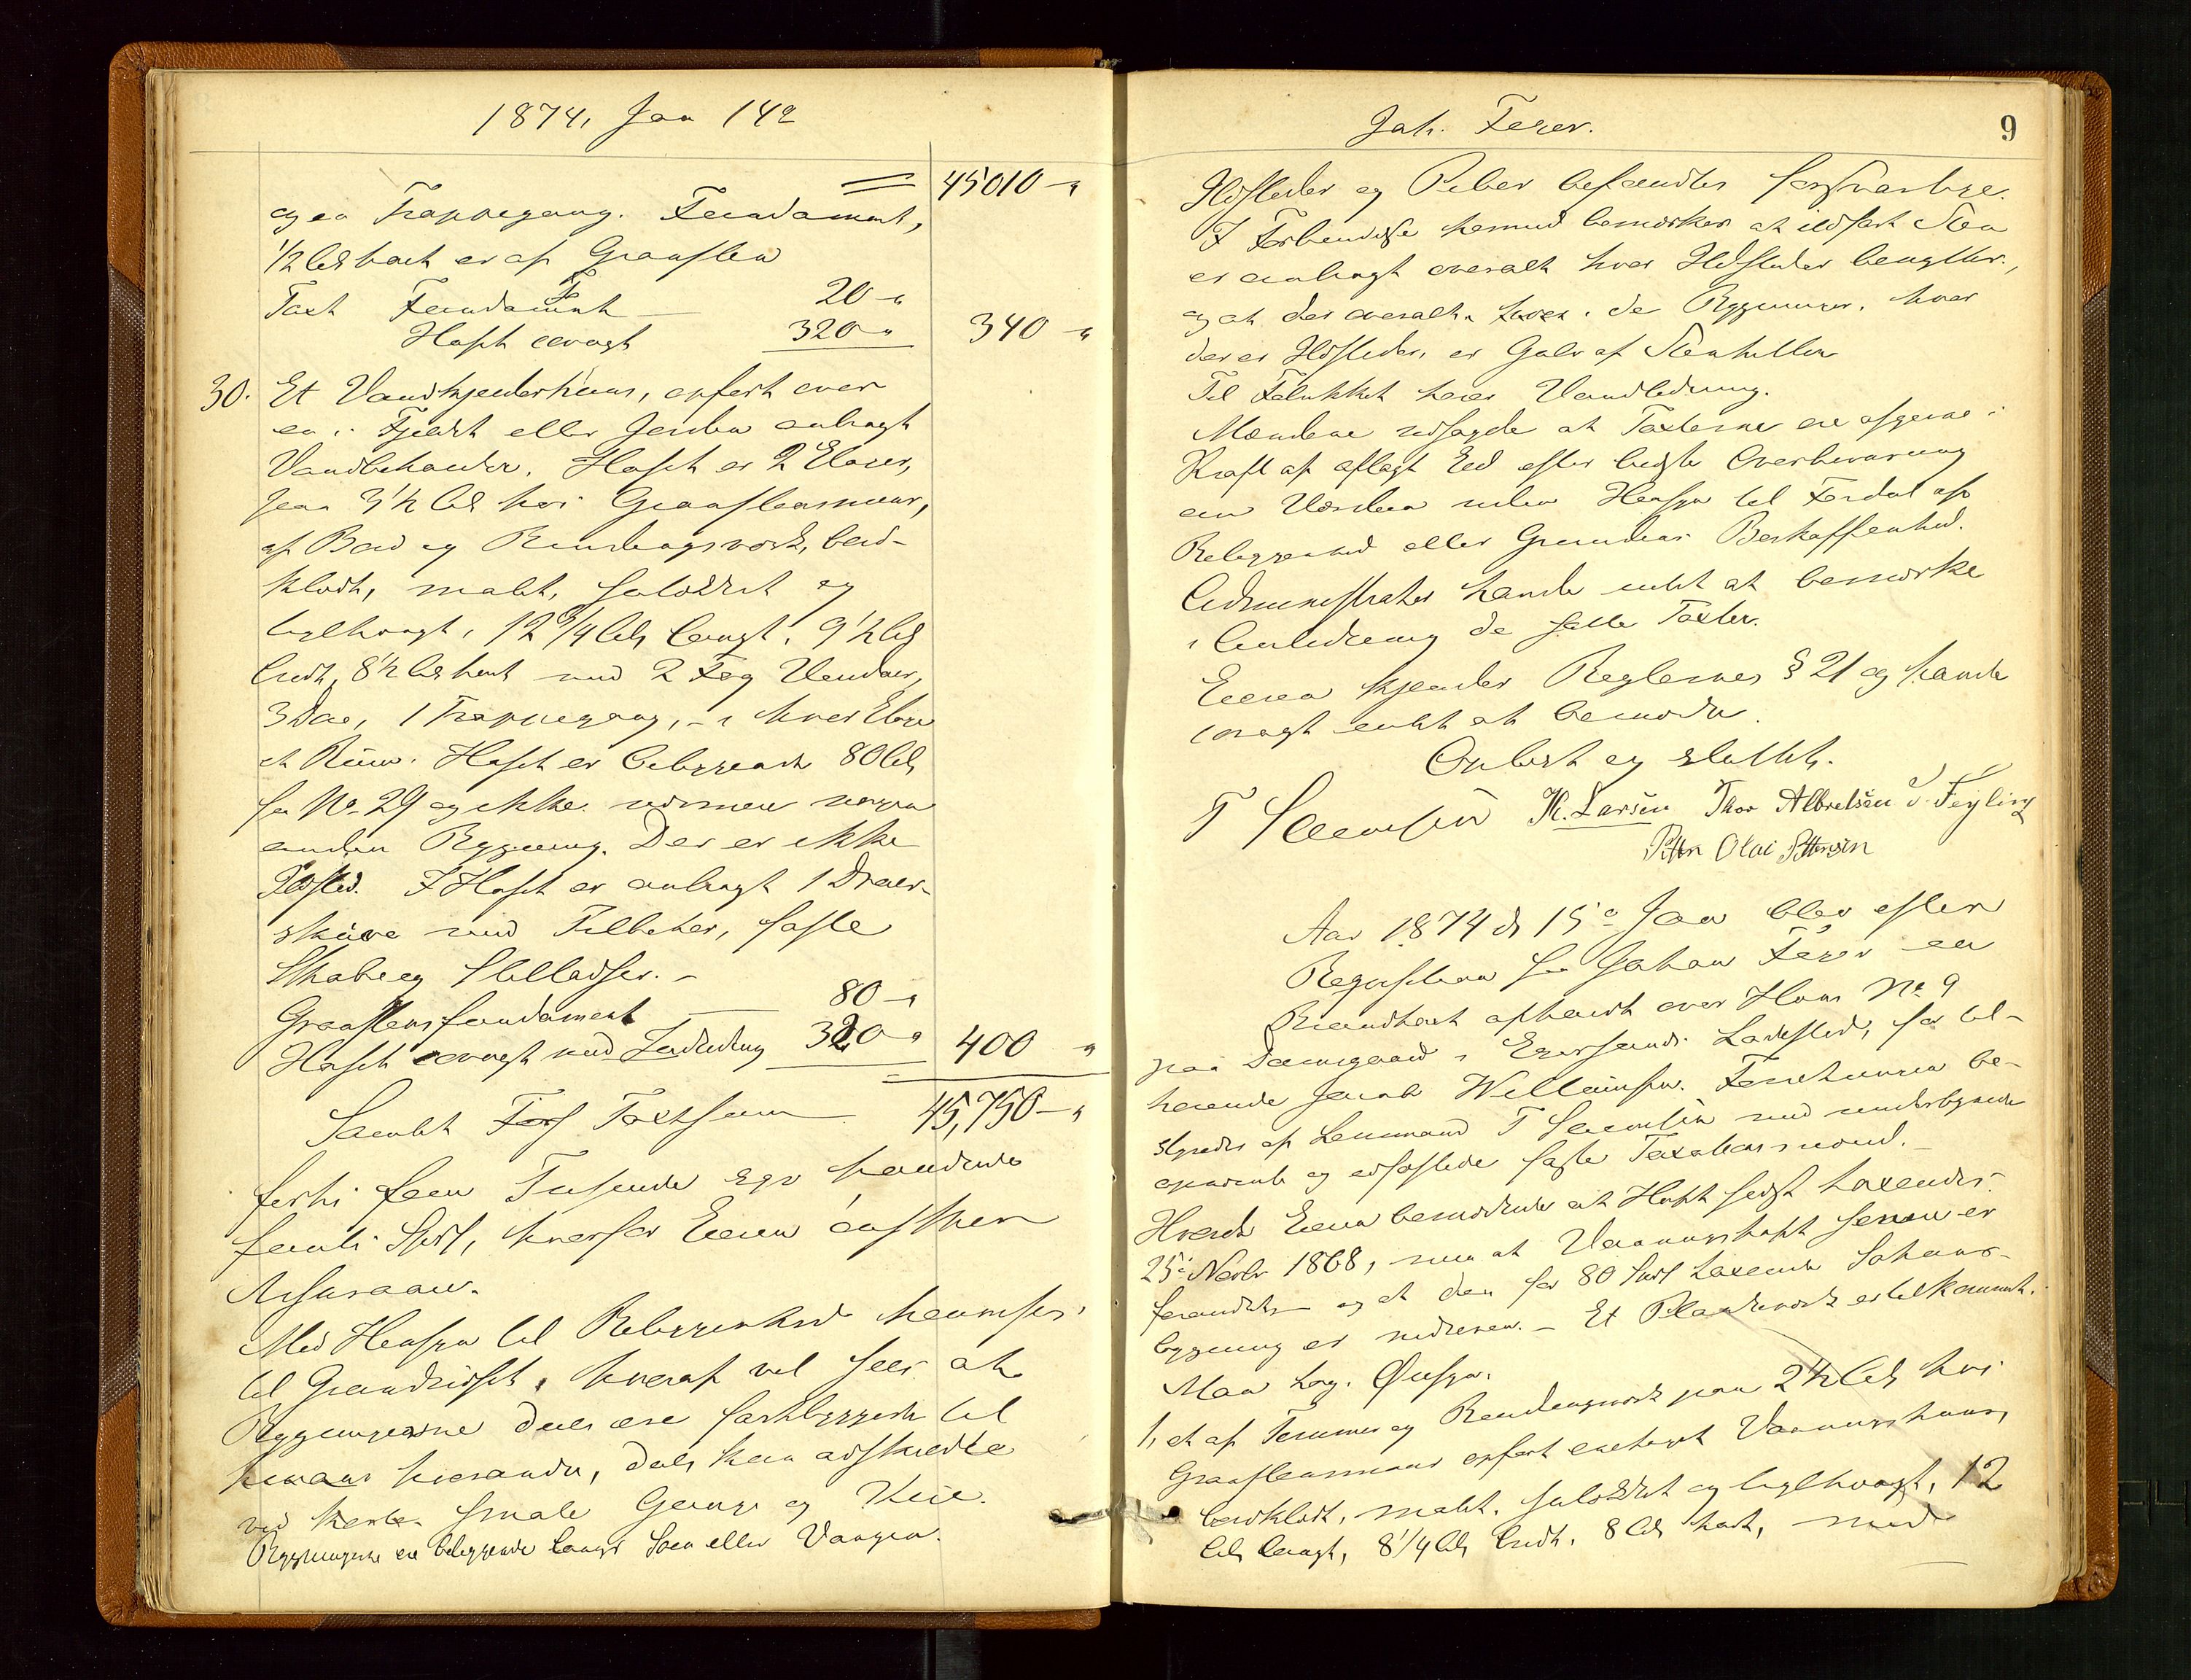 1874, Jan 14de
45010 "
og en Trappegang. Fundament,
1/2 Al høit er af Graasten
Taxt Fundament — 20 "
Huset øvrigt 320 " 340 "
30. Et Vandkjenderhuus, opført over
en i Fjeldet eller Jorden anbragt
Vandbeholder. Huset er 2 Etager,
paa 3 1/2 Al høi Graastensmuur,
af Bord og Bindingsværk, bord-
klædt, malt, sulældet og
teglhængt, 12 3/4 Al langt, 9 1/2 Al
bredt, 8 1/2 Al høit med 2 Fag Vinduer,
3 Døre, 1 Trappegang, – i hver Etage
et Rum. Huset er beliggende 80 Al
fra No. 29 og ikke nærmere nogen
anden Bygning. Der er ikke
Ildsted. I Huset er anbragt 1
med Tilbehør, faste
Skabe og Stilladser. –
Graastensfundament — 80 "
Huset øvrigt med Indredning 320 " 400 "
Samlet Taxtsum — 45,750 "
forti fem Tusende syv hundrede
femti Spd, hvorfor Eieren ønsker
Assurance.
Med Hensyn til Beliggenhed henvises
til Grundridset, hvoraf vil sees at
Bygningerne deels ere sammenbyggede til
hverandre, deels kun adskildte
ved smale Gange og Kaie.
Bygningerne ere beliggende langs Søen eller Vaagen.
Joh. Feyer.
9
Ildsteder og Piber befandtes forsvarlige.
I Forbindelse hermed bemærkes at ildfast Sten
er anbragt overalt hvor Ildsteder benyttes,
og at der overalt i de Bygninger, hvor
der er Ildsteder, er Gulv af Stenheller
Til hører Vandledning.
Mændene udsagde at Taxterne ere afgivne i
Kraft af aflagt Eed efter bedste Overbevisning
om Værdien uden Hensyn til Fordel af
Beliggenhed eller Grundens Beskaffenhed.
Administrator havde intet at bemærke
i Anledning de satte Taxter.
Eieren kjender Reglernes § 21 og havde
forøvrigt intet at bemærke.
Oplæst og sluttet.
T Svendsen K. Larsen Thor Albretsen T. Feyling
Petter Olai Pettersen
Aar 1874 d 15de Jan blev efter
Reqvisition fra Johan Feyer en
Brandtaxt afholdt over Huus No 9
paa Damsgaard i Egersunds Ladested, før til-
hørende Jacob Williamsen. Forretningen be-
styredes af Lensmand T Svendsen med undertegnede
opnævnte og edfæstede faste Taxationsmænd. –
Hvorda Eieren bemærkede at Huset sidst taxeredes
25de Novbr 1868, men at Vaaningshuset senere er
forandret og at den for 80 Spd taxerede
bygning er nedreven. – Et Plankeværk er tilkommet.
Man tog Øiesyn.
1, et af Tømmer og Bindingsværk paa 2 1/2 Al høi
Graastensmuur opført eenetages Vaaningshuus,
bordklædt, malet, sulældet og teglhængt, 12
Al langt, 8 1/4 Al bredt, 8 Al høit, med